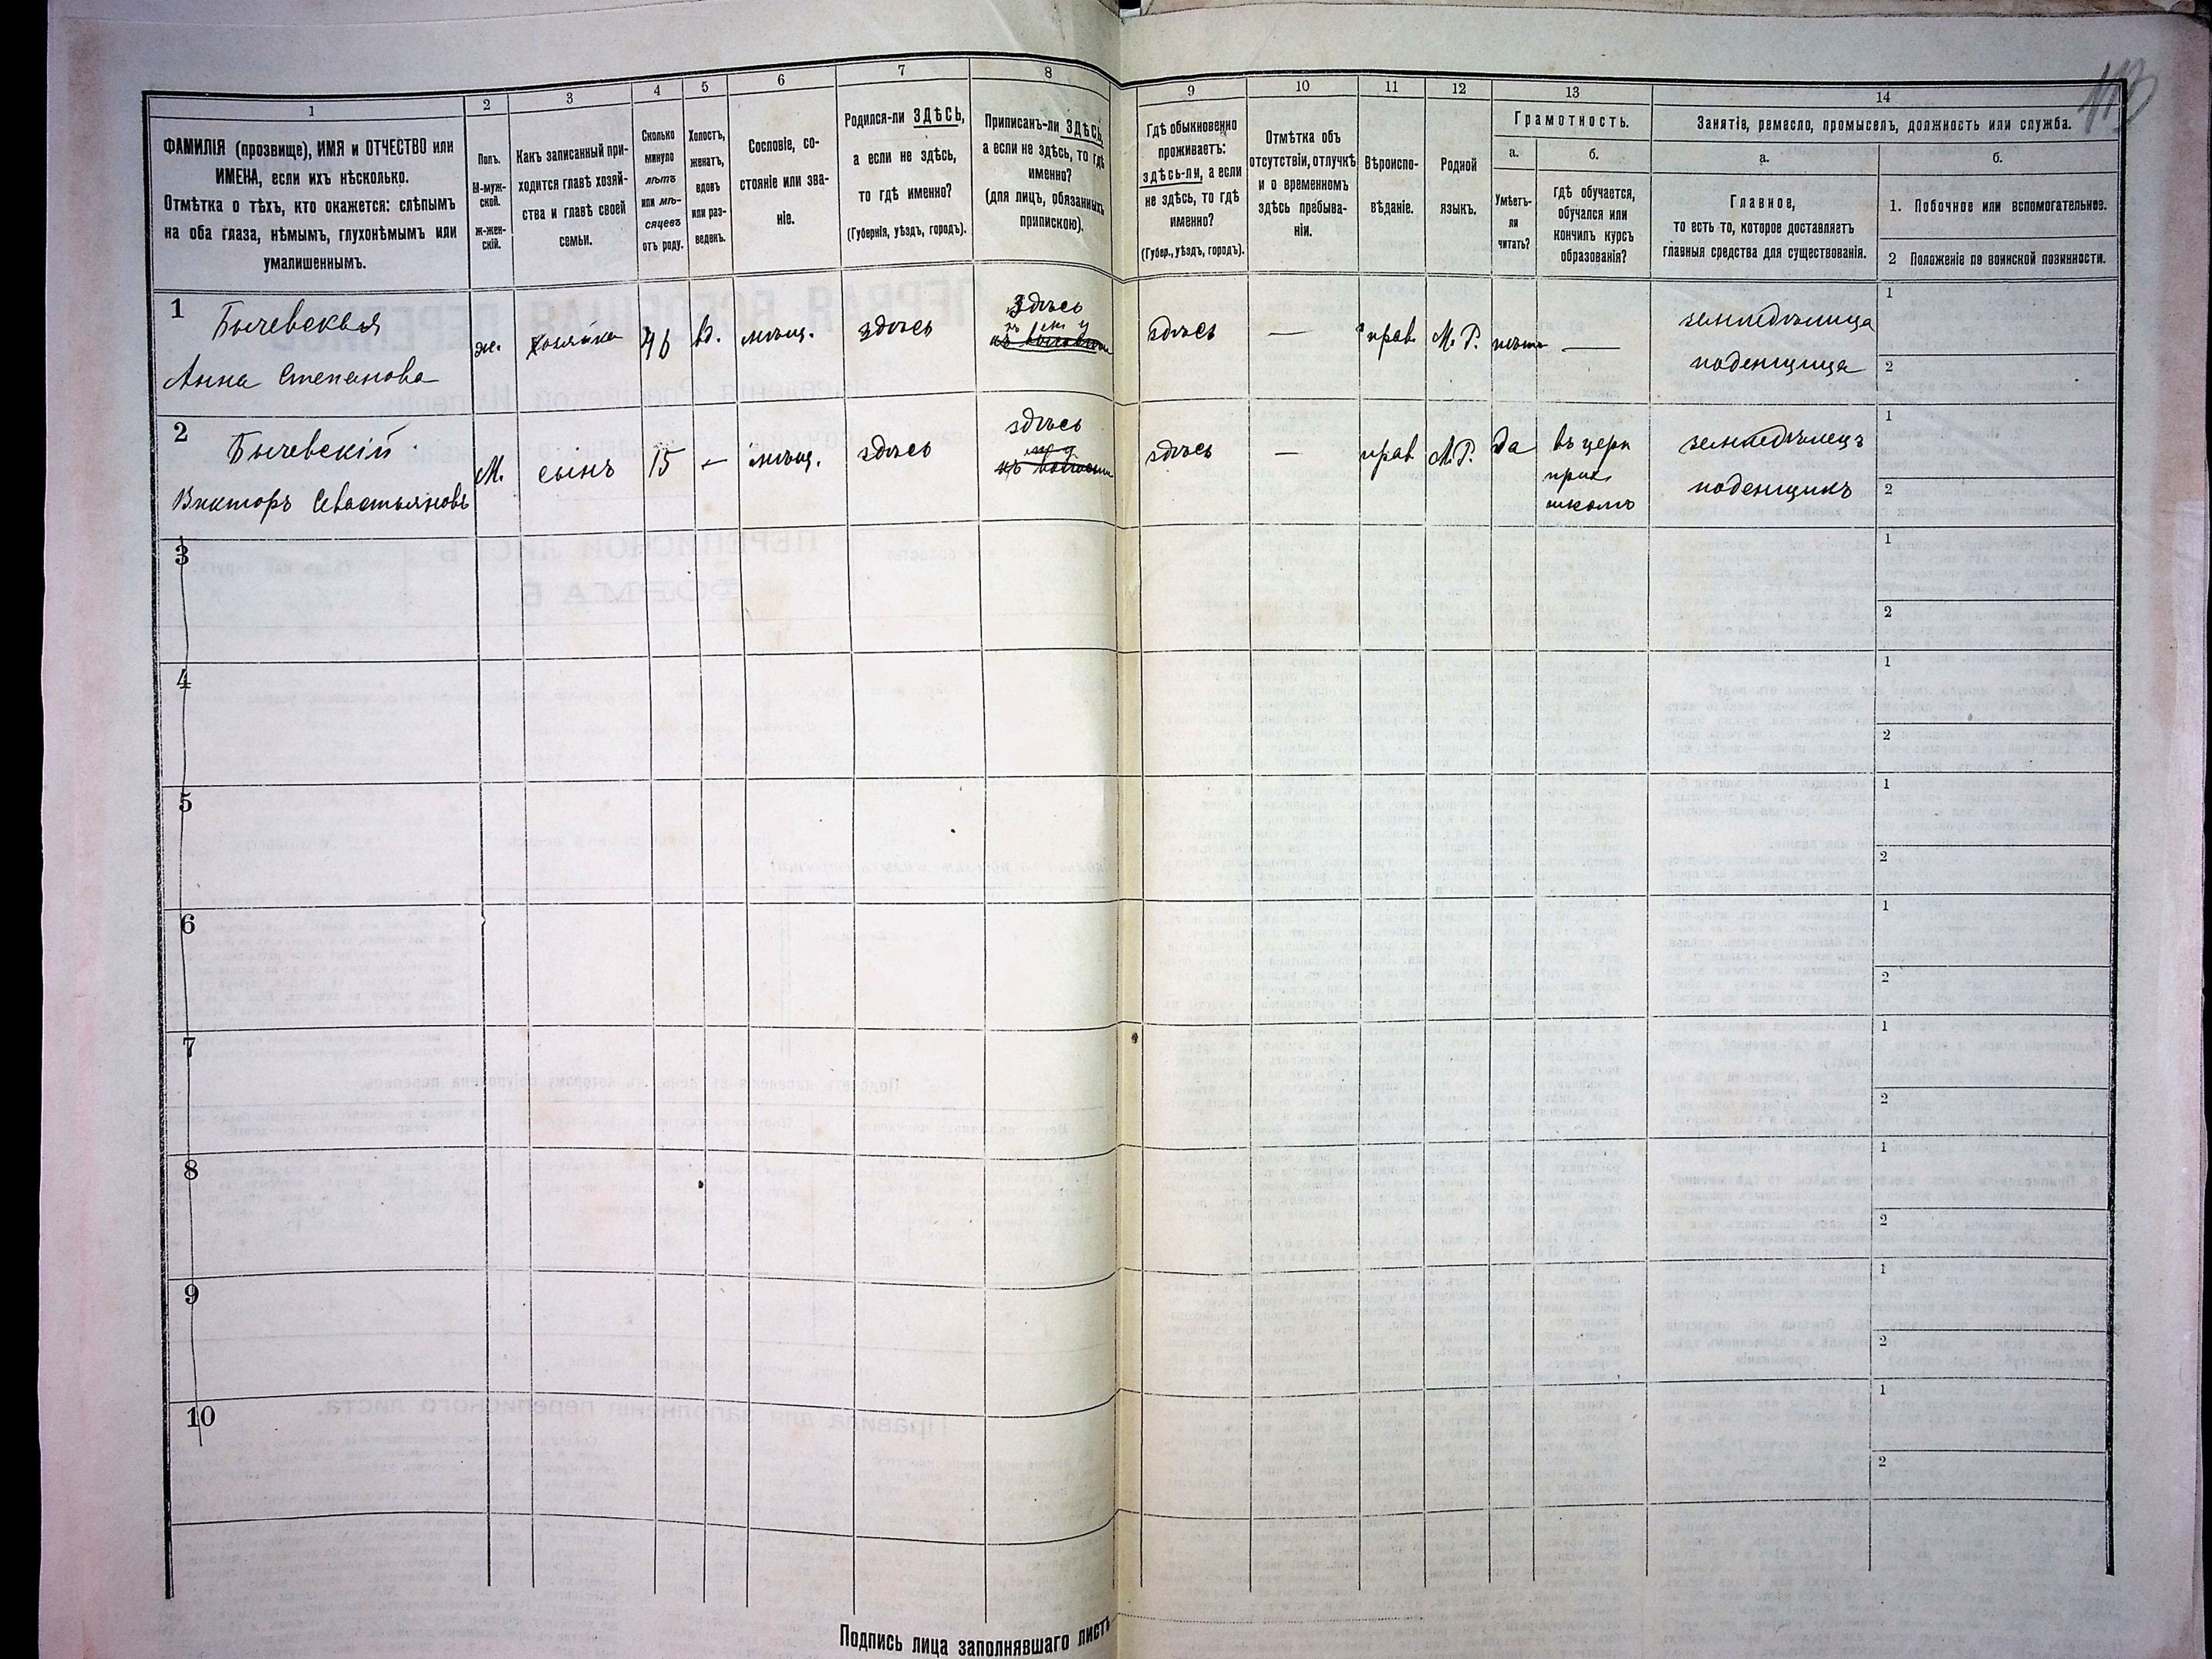 1 2 3 4 5 6 7 8 9 10 11 12 13 14
ФАМИЛІЯ (прозвище), ИМЯ и ОТЧЕСТВО или
ИМЕНА, если ихъ нѣсколько.
Отмѣтка о тѣхъ, кто окажется: слѣпымъ
на оба глаза, нѣмымъ, глухонѣмымъ или
умалишеннымъ.
Полъ.
М-муж-
ской.
ж-жен-
скій.
Какъ записанный при-
ходится главѣ хозяй-
ства и главѣ своей
семьи.
Сколько
минуло
лѣтъ
или мѣ-
сяцевъ
отъ роду.
Холостъ,
женатъ,
вдовъ
или раз-
веденъ.
Сословіе, со-
стояніе или зва-
ніе.
Родился-ли ЗДѢСЬ,
а если не здѣсь,
то гдѣ именно?
(Губернія, уѣздъ, городъ).
Приписанъ-ли ЗДѢСЬ,
а если не здѣсь, то гдѣ
именно?
(для лицъ, обязанныхъ
припискою).
Гдѣ обыкновенно
проживаетъ:
здѣсь-ли, а если
не здѣсь, то гдѣ
именно?
(Губер., уѣздъ, городъ).
Отмѣтка объ
отсутствіи, отлучкѣ
и о временномъ
здѣсь пребыва-
ніи.
Вѣроиспо-
вѣданіе.
Родной
языкъ.
Грамотность.
а.
Умѣетъ-
ли
читать?
б.
гдѣ обучается,
обучался или
кончилъ курсъ
образованія?
Занятіе, ремесло, промыселъ, должность или служба.
а.
Главное,
то есть то, которое доставляетъ
главныя средства для существованія.
б.
1. Побочное или вспомогательное.
2 Положеніе по воинской повинности.
1
Бычевская
Анна Степанова
ж. хозяйка 46 вд. мѣщ. здѣсь здѣсь здѣсь — прав. М. Р. нѣтъ —
земледѣлица
поденщица
1
2
2
Бычевскій
Викторъ Севастьяновъ
М. сынъ 15 — мѣщ. здѣсь здѣсь здѣсь — прав М. Р. да
въ церк
прих.
школѣ
земледѣлецъ
поденщикъ
1
2
3
1
2
4
1
2
5
1
2
6
1
2
7
1
2
8
1
2
9
1
2
10
1
2
Подпись лица заполнявшаго листъ